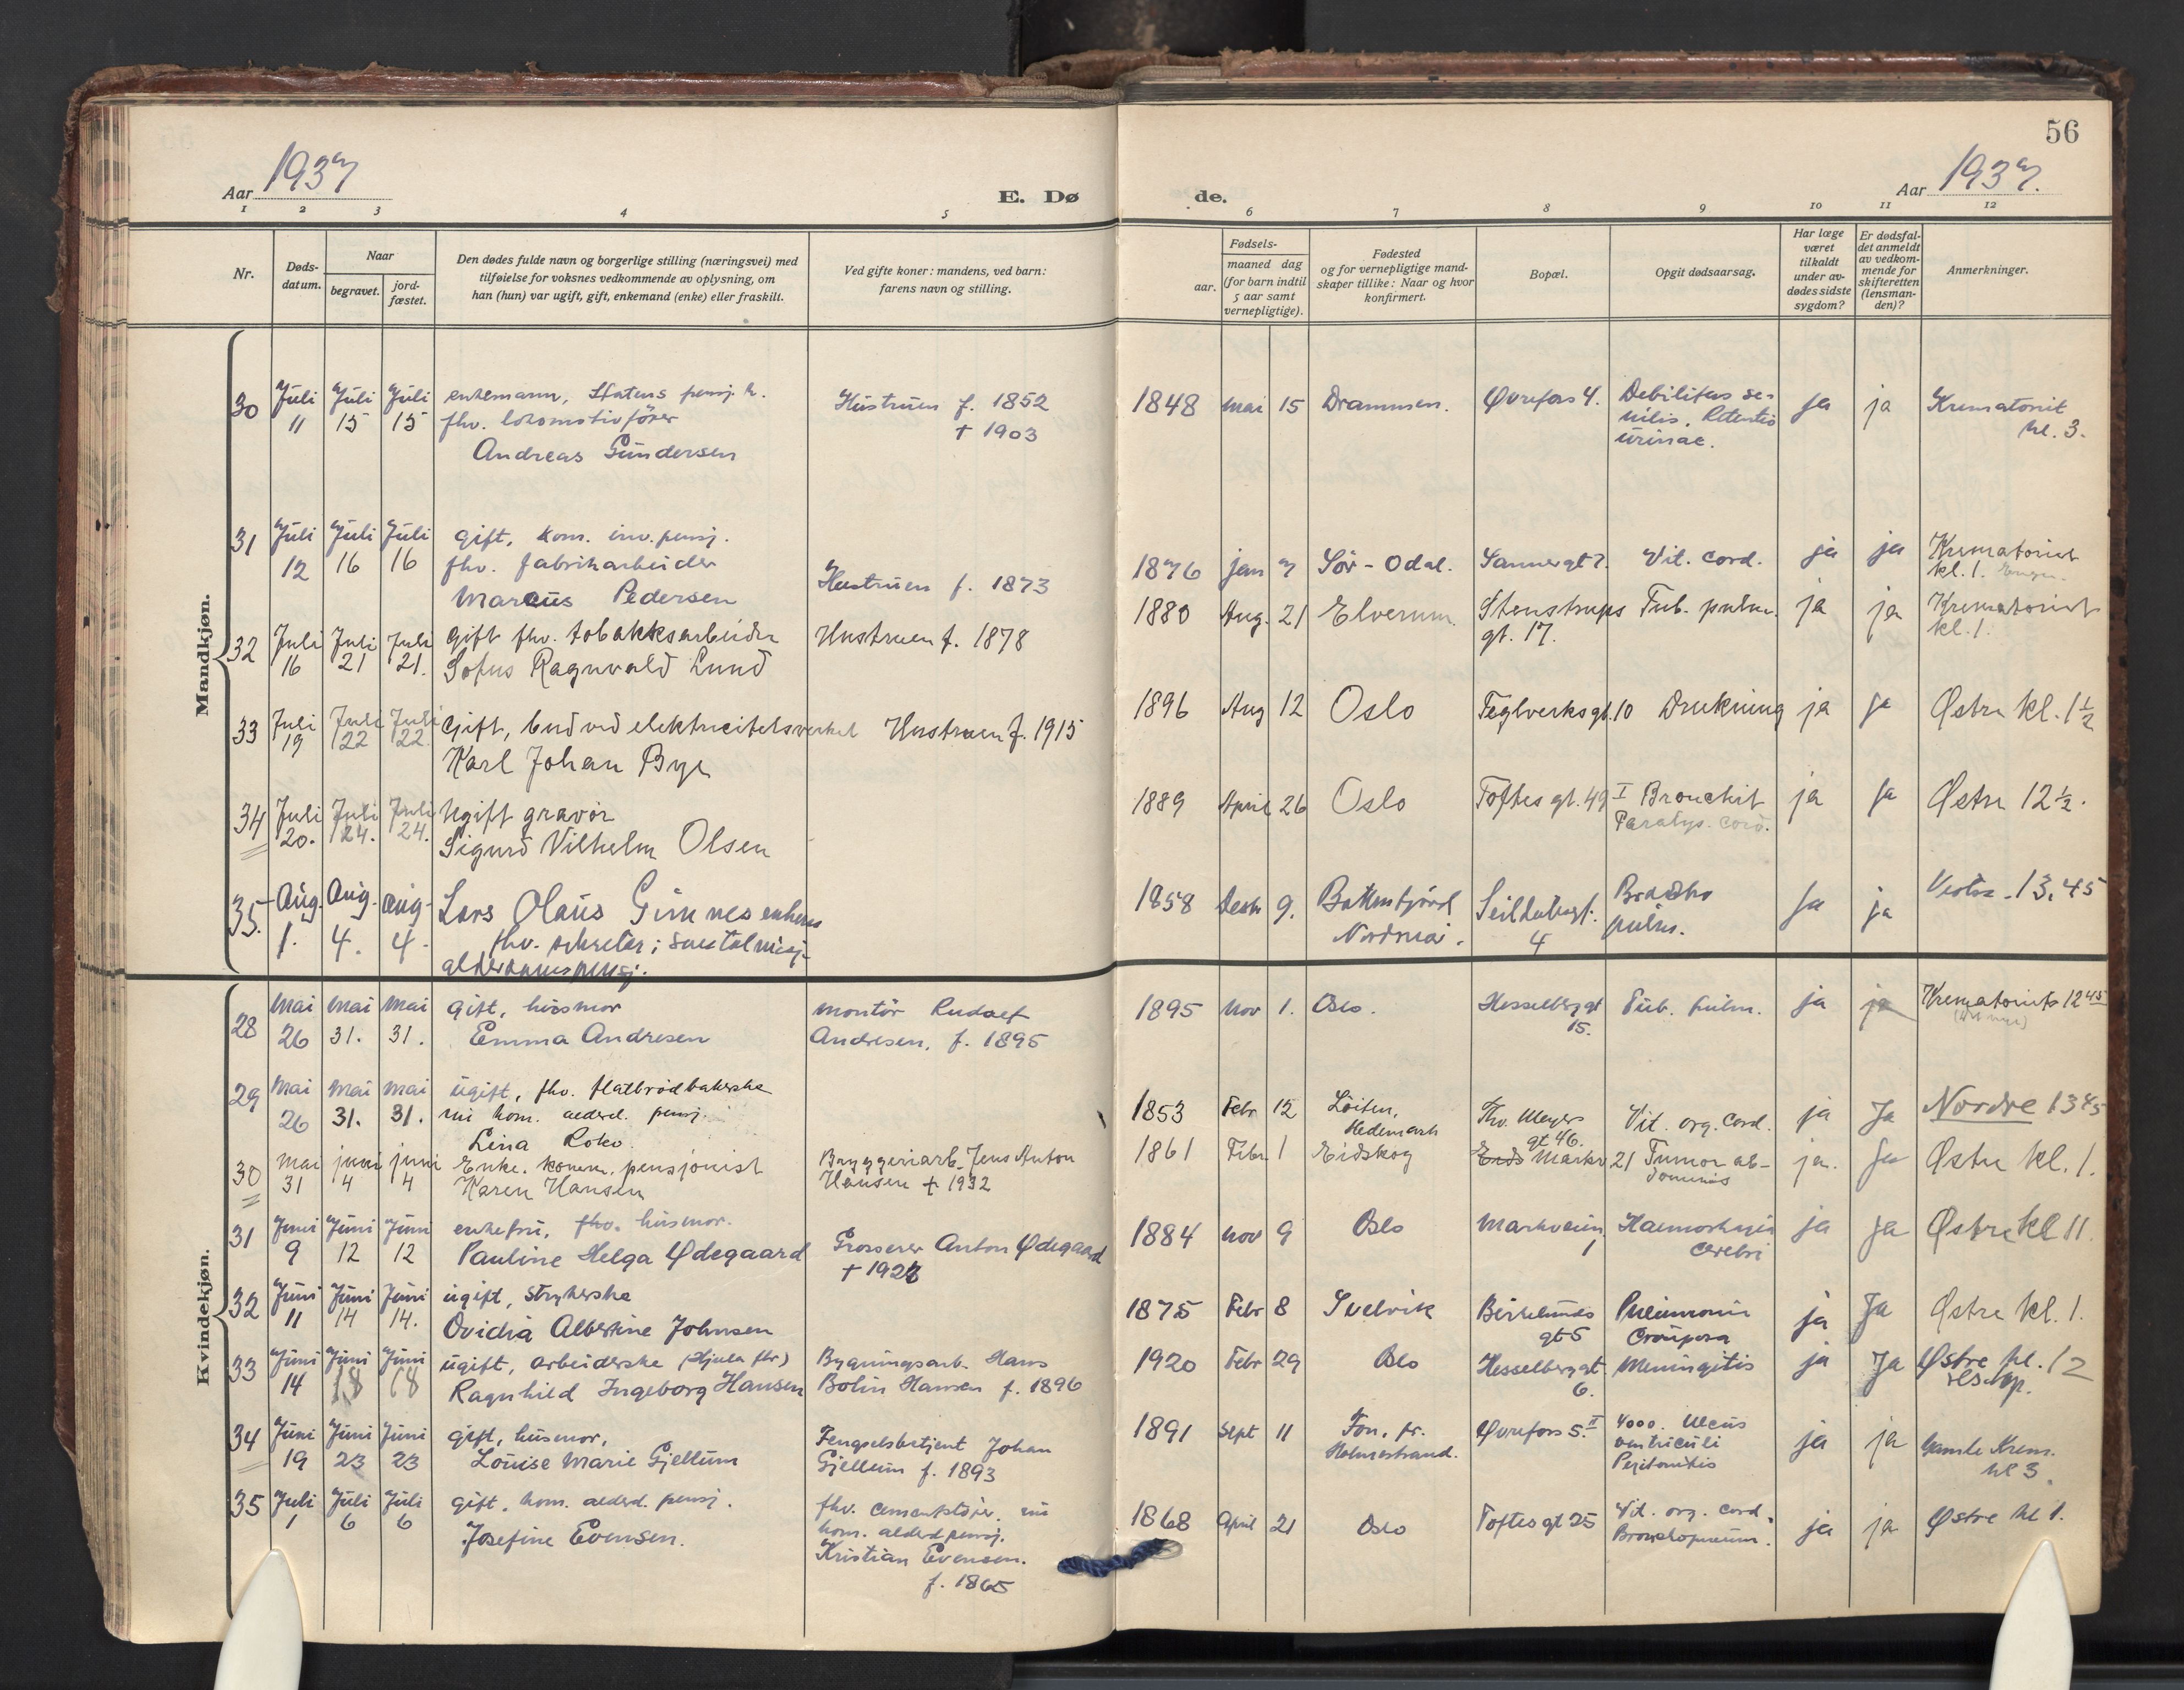 56
Aar 1937
E. Dø
de.
Aar 1937.
1 2 3 4 5 6 7 8 9 10 11 12
Nr.
Døds-
datum.
Naar
begravet.
jord-
fæstet.
Den dødes fulde navn og borgerlige stilling (næringsvei) med
tilføielse for voksnes vedkommende av oplysning, om
han (hun) var ugift, gift, enkemand (enke) eller fraskilt.
Ved gifte koner: mandens, ved barn:
farens navn og stilling.
Fødsels-
aar.
maaned dag
(for barn indtil
5 aar samt
vernepligtige).
Fødested
og for vernepligtige mand-
skaper tillike: Naar og hvor
konfirmert.
Bopæl.
Opgit dødsaarsag.
Har læge
været
tilkaldt
under av-
dødes sidste
sygdom?
Er dødsfal-
det anmeldt
av vedkom-
mende for
skifteretten
(lensman-
den)?
Anmerkninger.
Mandkjøn.
30 Juli 11 Juli 15 Juli 15
enkemann, Statens pensj.
fhv. lokomotivfører
Andreas Gundersen
Hustruen f. 1852
† 1903
1848 mai 15 Drammen. Øvrefoss 4.
Debilitas se-
nilis. Retentio
urinae.
ja ja Krematoriet
kl. 3.
31 Juli 12 Juli 16 Juli 16
gift, kom. inv. pensj.
fhv. fabrikarbeider
Marcus Pedersen
Hustruen f. 1873
1876 jan 7 Sør-Odal. Sannergt 7. Vit. cord. ja ja Krematoriet
kl. 1.
32 Juli 16 Juli 21 Juli 21.
Gift fhv. tobakksarbeider
Sofus Ragnvald Lund
Hustruen f. 1878
1880 Aug. 21 Elverum. Stenstrups
gt. 17.
Tub. pulm. ja ja Krematoriet
kl. 1.
33 Juli 19 Juli 22 Juli 22.
Gift, bud ved elektricitetsverket
Karl Johan Bye
Hustruen f. 1915
1896 Aug 12 Oslo Teglverksgt. 10 Drukning ja ja Østre kl. 1 1/2
34 Juli 20. Juli 24. Juli 24.
Ugift gravør
Sigurd Vilhelm Olsen
1889 April 26 Oslo Toftes gt. 49 I Bronchit
Paralys. cord.
ja ja Østre 12 1/2.
35. Aug. 1. Aug. 4. aug. 4.
Lars Olaus Gimnes enkem
fhv. sekretær;
alderdomspensj.
1858 Desbr 9. Battenfjord
Nordmør.
4
pulm.
ja ja Vestre. 13.45
Kvindekjøn.
28 Mai 26 Mai 31. Mai 31.
gift, husmor
Emma Andresen
montør Rudolf
Andresen, f. 1895
1895 Nov 1. Oslo. Hesselberg gt
15.
Tub. pulm. ja ja Krematoriets 12 45
29 Mai 26 Mai 31. Mai 31.
ugift, fhv. flatbrødbakerske
nu kom. alderd. pensj.
Lina Roko.
1853 Febr 12 Løiten,
Hedemark
Thv. Meyers
gt 46.
Vit. org. cord. ja Ja Nordre 13 45
30 Mai 31 juni 4 juni 4
Enke. komm. pensjonist
Karen Hansen
Bryggeriarb. Jens Anton
Hansen † 1932
1861 Febr. 1 Eidskog Eids Markv 21 Tumor ab-
dominis
ja. Ja Østre kl. 1.
31 Juni 9 Juni 12 Juni 12
enkefru, fhv. husmor.
Pauline Helga Ødegaard
Grosserer Anton Ødegaard
† 1927
1884 Nov 9 Oslo Markveien
1
Haemorhagia
cerebri
ja Ja Østre kl 11.
32 Juni 11 Juni 14 Juni 14.
ugift, strykerske
Ovidia Albertine Johnsen
1875 Febr 8 Svelvik Birkelunds
gt 5
Pneumonia
Crouposa
ja Ja Østre kl. 1.
33 Juni 14 Juni 18 Juni 18
ugift, arbeiderske (Hjula fbr)
Ragnhild Ingeborg Hansen
Bygningsarb. Hans
Bolin Hansen f. 1896
1920 Febr 29 Oslo Hesselberg gt.
6.
Meningitis ja Ja Østre kl. 12
34 Juni 19 Juni 23 Juni 23
gift, husmor,
Louise Marie Gjellum
Fengselsbetjent Johan
Gjellum f. 1893
1891 Sept 11 Fon, pr.
Holmestrand.
Øvrefoss 5. II
Ulcus
ventriculi
Peritonitis
ja ja Gamle Krem.
kl 3.
35 Juli 1 Juli 6 Juli 6
gift, kom. alderd. pensj.
Josefine Evensen.
fhv. cementstøper. nu
kom. alderd. pensj.
Kristian Evensen.
f. 1865
1868 April 21 Oslo Toftes gt 25
Vit. org. cord.
Bronchopneum.
ja ja Østre kl 1.